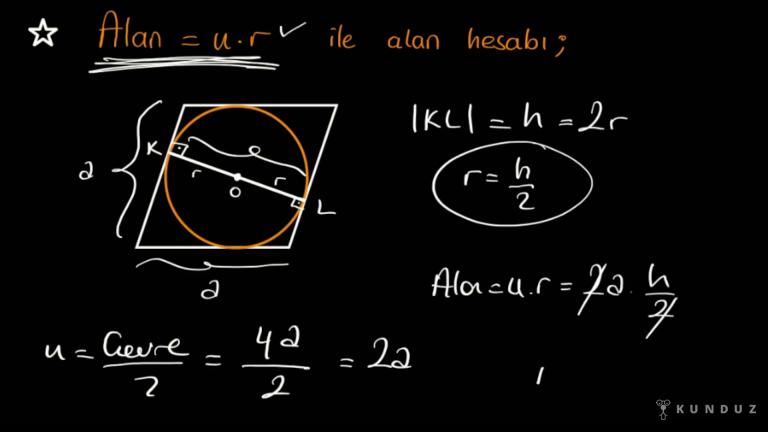 ☆ Alan = u.r ✓ ile alan hesabı;
K
L
O
r
r
a
a
|KL| = h = 2r
r = h/2
Alan = u.r = 2a . h/2
u = Çevre/2 = 4a/2 = 2a
KUNDUZ